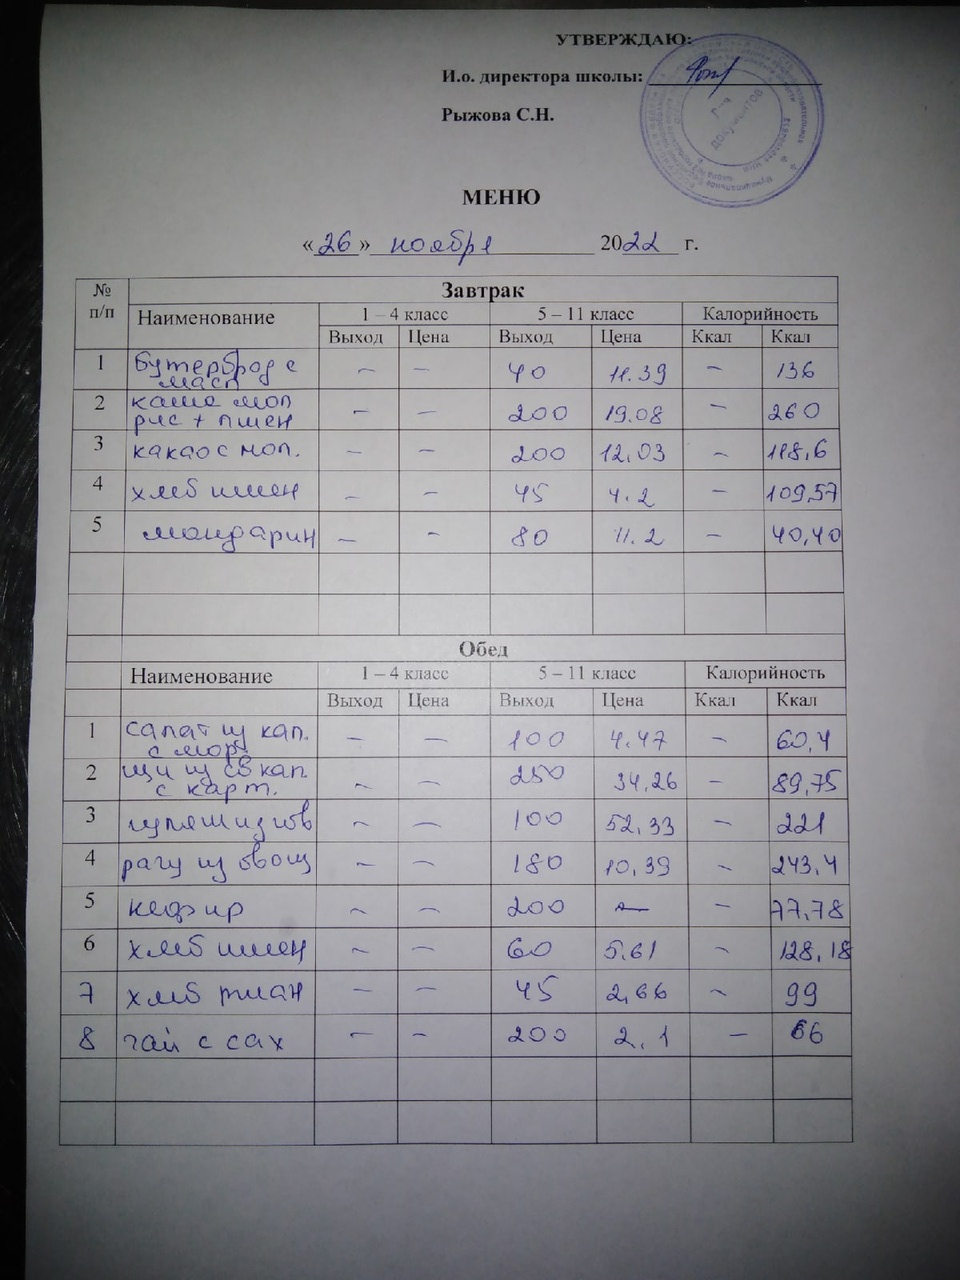 УТВЕРЖДАЮ:
И.о. директора школы:
Рыжова С.Н.
Для документов
МЕНЮ
«26» ноября 2022 г.
№ п/п Завтрак
Наименование 1 – 4 класс 5 – 11 класс Калорийность
Выход Цена Выход Цена Ккал Ккал
1 бутерброд с масл – – 40 11.39 – 136
2 каша мол рис + пшен – – 200 19.08 – 260
3 какао с мол. – – 200 12,03 – 118,6
4 хлеб пшен – – 45 4.2 – 109,57
5 мандарин – – 80 11.2 – 40,40
Обед
Наименование 1 – 4 класс 5 – 11 класс Калорийность
Выход Цена Выход Цена Ккал Ккал
1 салат из кап. с морк – – 100 4.47 – 60,4
2 щи из св кап с карт. – – 250 34,26 – 89,75
3 гуляш из гов – – 100 52,33 – 221
4 рагу из овощ – – 180 10,39 – 243,4
5 кефир – – 200 – – 77,78
6 хлеб пшен – – 60 5.61 – 128,18
7 хлеб ржан – – 45 2,66 – 99
8 чай с сах – – 200 2.1 – 66